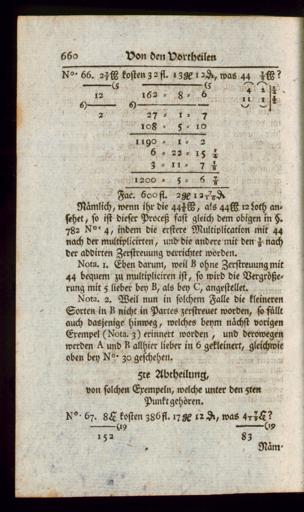 660 Von den Vortheilen
No. 66. 2⅖ ℔ kosten 32 fl. 13 ₰ 12 ₰, was 44 ℔?
12 162 = 8 = 6
6) 6)
2 27 = 1 = 7
108 = 5 = 10
1190 = 1 = 2
6 = 22 = 15
3 = 11 = 7
1200 = 5 = 6
Fac. 600 fl.
Nämlich, wenn ihr die 44½ ℔, als 44 ℔ 12 Loth an-
sehet, so ist dieser Proceß fast gleich dem obigen in §.
782 No. 4, indem die erstere Multiplication mit 44
nach der multiplicirten, und die andere mit den nach
der addirten Zerstreuung verrichtet worden.
Nota. 1. Eben darum, weil B ohne Zerstreuung mit
44 bequem zu multipliciren ist, so wird die Vergröße-
rung mit 5 lieber bey B, als bey C, angestellet.
Nota. 2. Weil nun in solchem Falle die kleineren
Sorten in B nicht in Partes zerstreuet worden, so fällt
auch dasjenige hinweg, welches beym nächst vorigen
Exempel (Nota. 3) erinnert worden, und derowegen
werden A und B allhier lieber in 6 gekleinert, gleichwie
oben bey No. 30 geschehen.
5te Abtheilung,
von solchen Exempeln, welche unter den 5ten
Punkt gehören.
No. 67. 8 kosten 386 fl. 17 12, was
(19 (19
152 83
Näm-